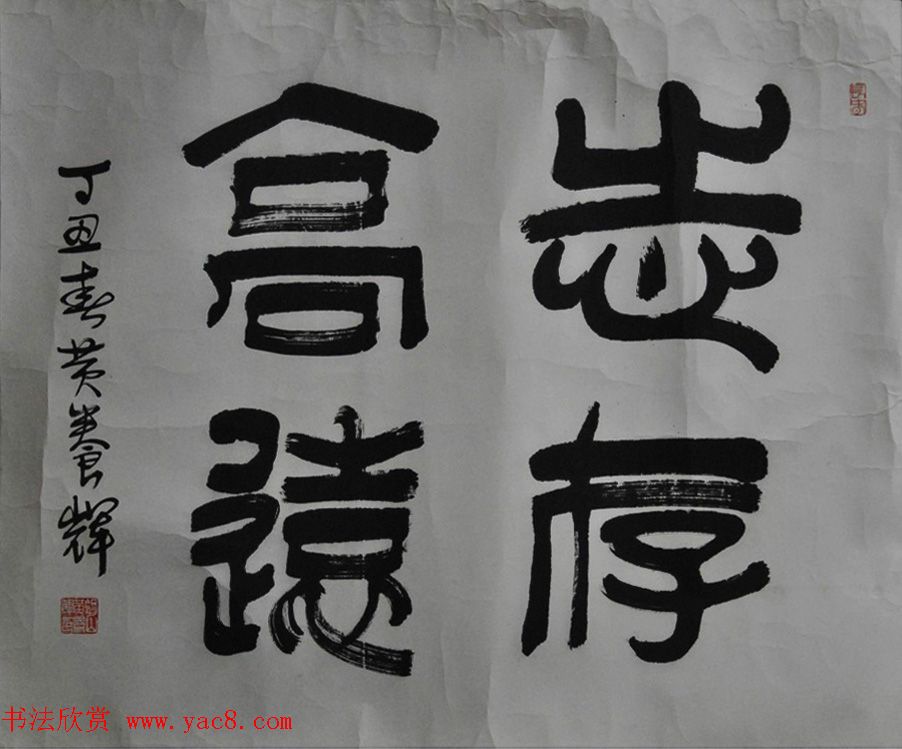 志存
高遠
丁丑春黄养辉
书法欣赏 www.yac8.com